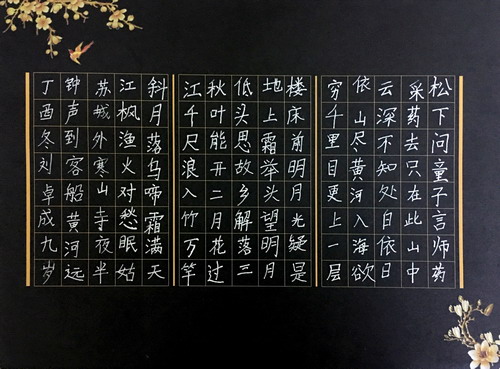 松下问童子言师药
采药去只在此山中
云深不知处白依日
依山尽黄河入海欲
穷千里目更上一层
楼床前明月光疑是
地上霜举头望明月
低头思故乡解落三
秋叶能开二月花过
江千尺浪入竹万竿
斜月落乌啼霜满天
江枫渔火对愁眠姑
苏城外寒山寺夜半
钟声到客船黄河远
丁酉冬刘卓成九岁